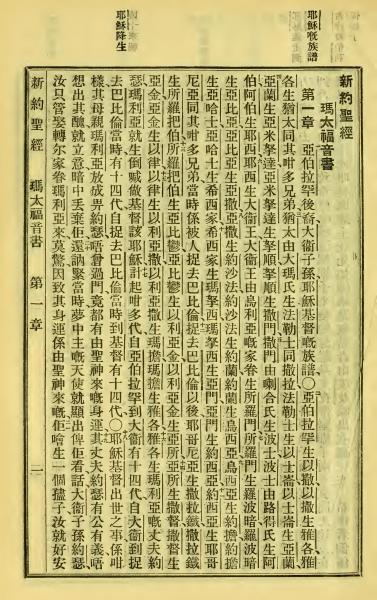 耶穌嘅族譜
耶穌降生
新約聖經
瑪太福音書
第一章 亞伯拉罕後裔大衞子孫耶穌基督嘅族譜〇亞伯拉罕生以撒以撒生雅各雅
各生猶太同其咁多兄弟猶太由大瑪氏生法勒士同撒拉法勒士生以士崙以士崙生亞蘭
亞蘭生亞米拏達亞米拏達生拏順拏順生撒門撒門由喇合氏生波士波士由路得氏生阿
伯阿伯生耶西耶西生大衞王大衞王由烏利亞嘅家眷生所羅門所羅門生羅波暗羅波暗
生亞比亞亞比亞生亞撒亞撒生約沙法約沙法生約蘭約蘭生烏西亞烏西亞生約擔約擔
生亞哈士亞哈士生希西家希西家生瑪拏西瑪拏西生亞們亞們生約西亞約西亞生耶哥
尼亞同其咁多兄弟當時係被人捉去巴比倫捉去巴比倫以後耶哥尼亞生撒拉鐵撒拉鐵
生所羅把伯所羅把伯生亞比鬱亞比鬱生以利亞金以利亞金生亞所亞所生撒督撒督生
亞金亞金生以律以律生以利亞撒以利亞撒生瑪擔瑪擔生雅各雅各生瑪利亞嘅丈夫約
瑟瑪利亞就生倒喊做基督該耶穌計起咁多代自亞伯拉罕到大衞有十四代自大衞到捉
去巴比倫當時有十四代自捉去巴比倫當時到基督有十四代〇耶穌基督出世之事係咁
樣其母親瑪利亞放成畀約瑟唔曾過門竟都有由聖神來嘅身運其丈夫約瑟有公有義唔
想出其醜就立意暗中丟棄佢還緊當時夢中主嘅天使就顯出俾佢看話大衞子孫約瑟
汝只管娶轉爾家眷瑪利亞來莫驚因致其身運係由聖神來嘅佢噲生一個子汝就好安
新約聖經 瑪太福音書 第一章 一